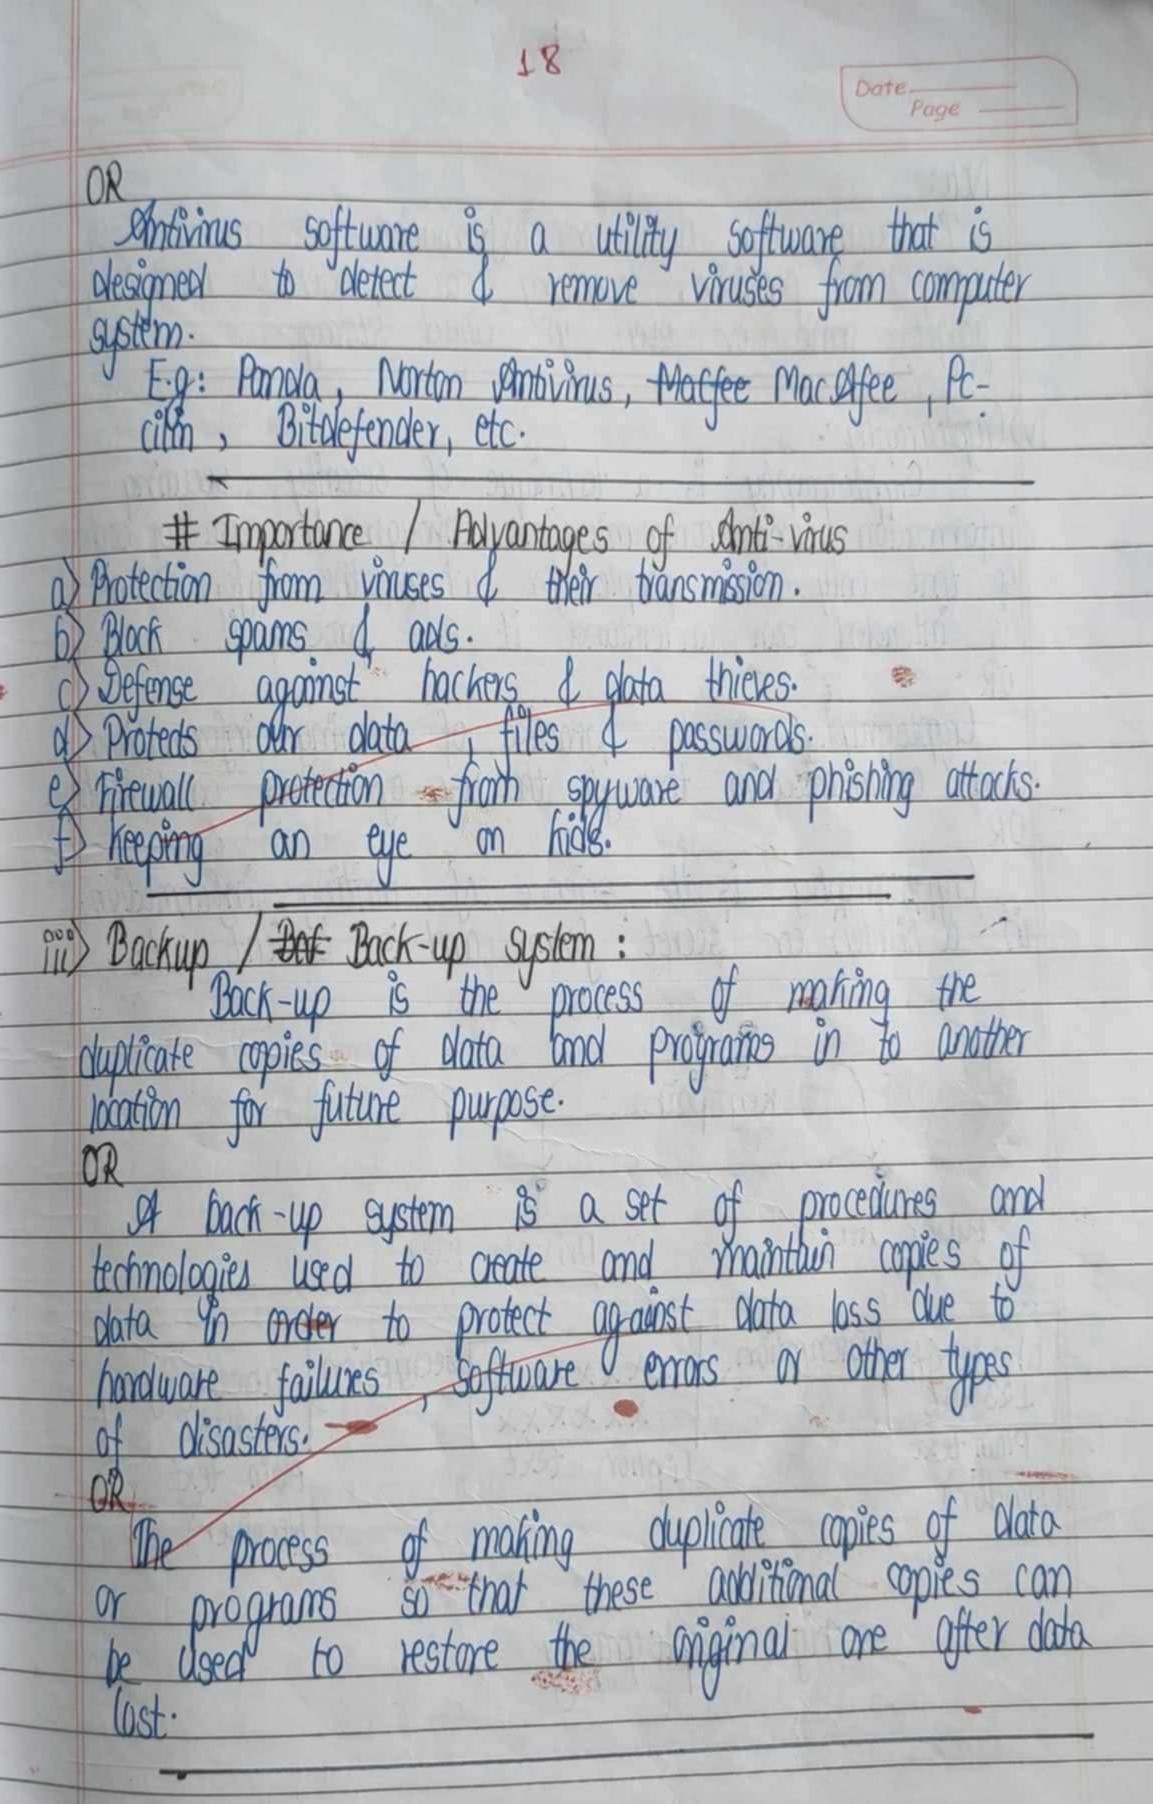 18
Date
Page
OR
Antivirus software is a utility software that is
designed to detect & remove viruses from computer
system.
E.g: Panda, Norton Antivirus, Macfee MacAfee, Pc-
cillin, Bitdefender, etc.
# Importance / Advantages of Anti-virus
a) Protection from viruses & their transmission.
b) Block spams & ads.
c) Defense against hackers & data thieves.
d) Protects our data, files & passwords.
e) Firewall protection from spyware and phishing attacks.
f) Keeping an eye on kids.
iii) Backup / Back-up system :
Back-up is the process of making the
duplicate copies of data and programs in to another
location for future purpose.
OR
A back-up system is a set of procedures and
technologies used to create and maintain copies of
data in order to protect against data loss due to
hardware failures, software errors or other types
of disasters.
OR
The process of making duplicate copies of data
or programs so that these additional copies can
be used to restore the original one after data
lost.